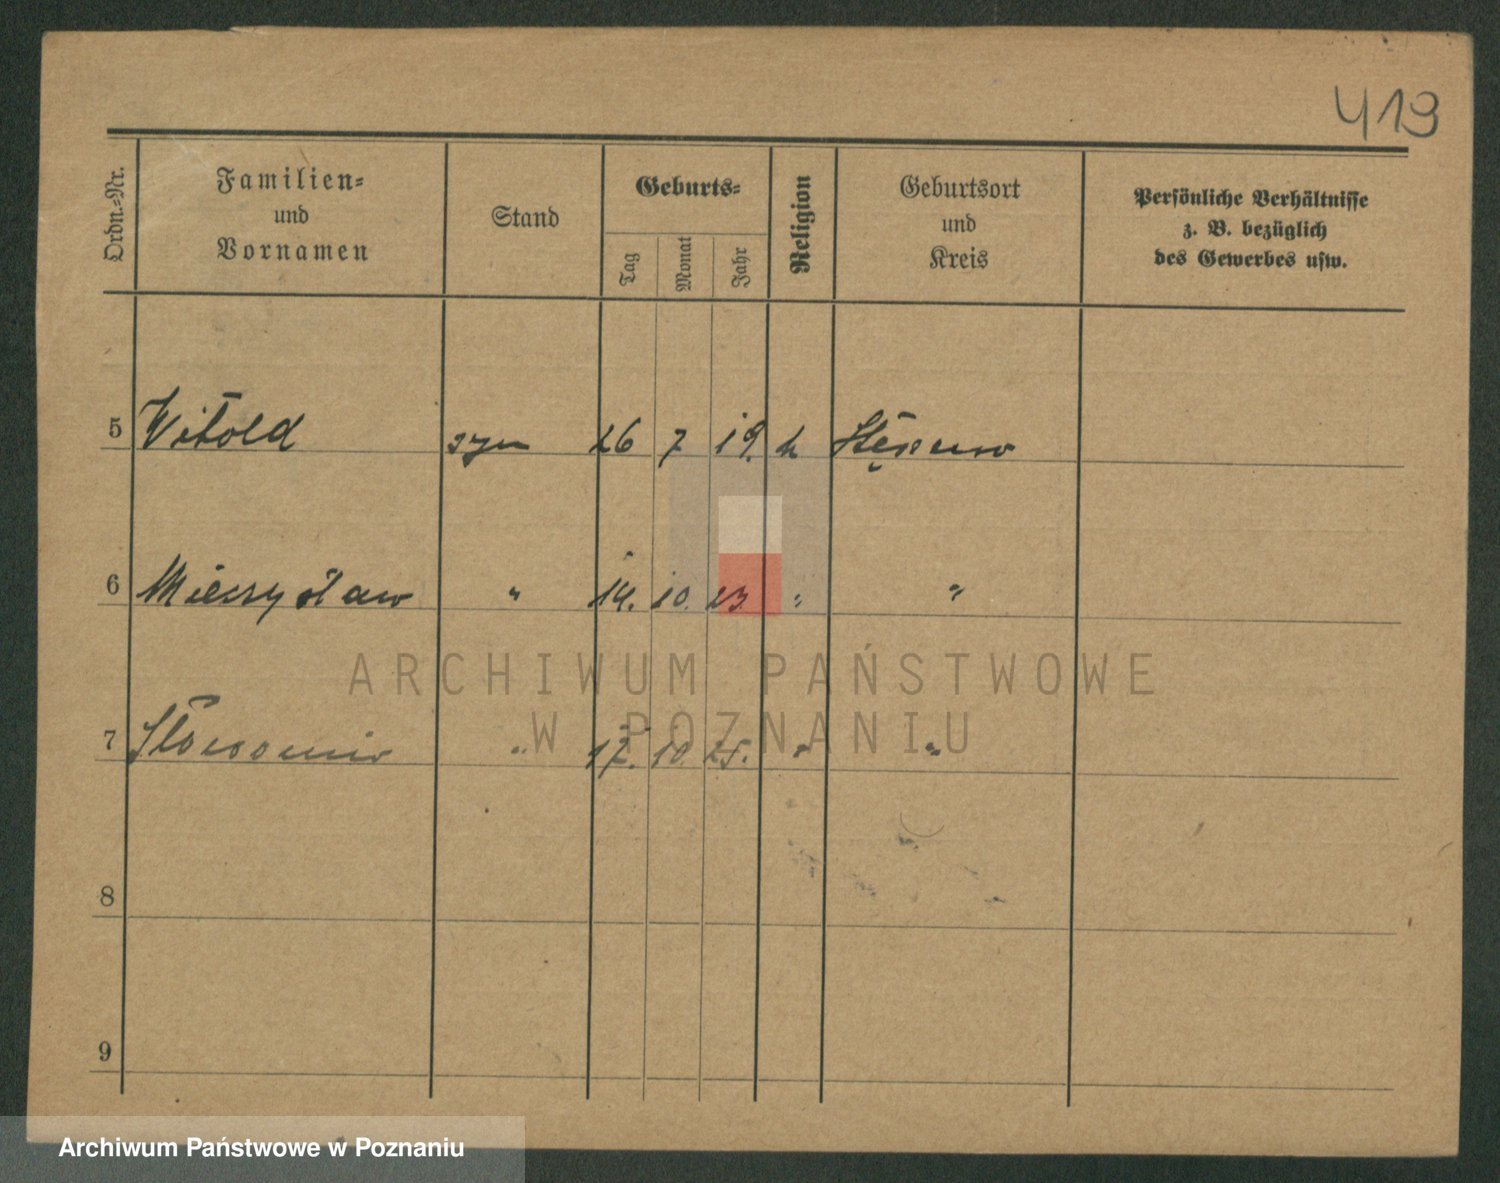 419
Ordn.-Nr.
Familien-
und
Vornamen
Stand
Geburts-
Tag
Monat
Jahr
Religion
Geburtsort
und
Kreis
Persönliche Verhältnisse
z. B. bezüglich
des Gewerbes usw.
5 Witold syn 26 7 19. k
6 Mieczysław " 14. 10. 23. " "
ARCHIWUM PAŃSTWOWE
W POZNANIU
7 " 17. 10. 25. " "
8
9
Archiwum Państwowe w Poznaniu